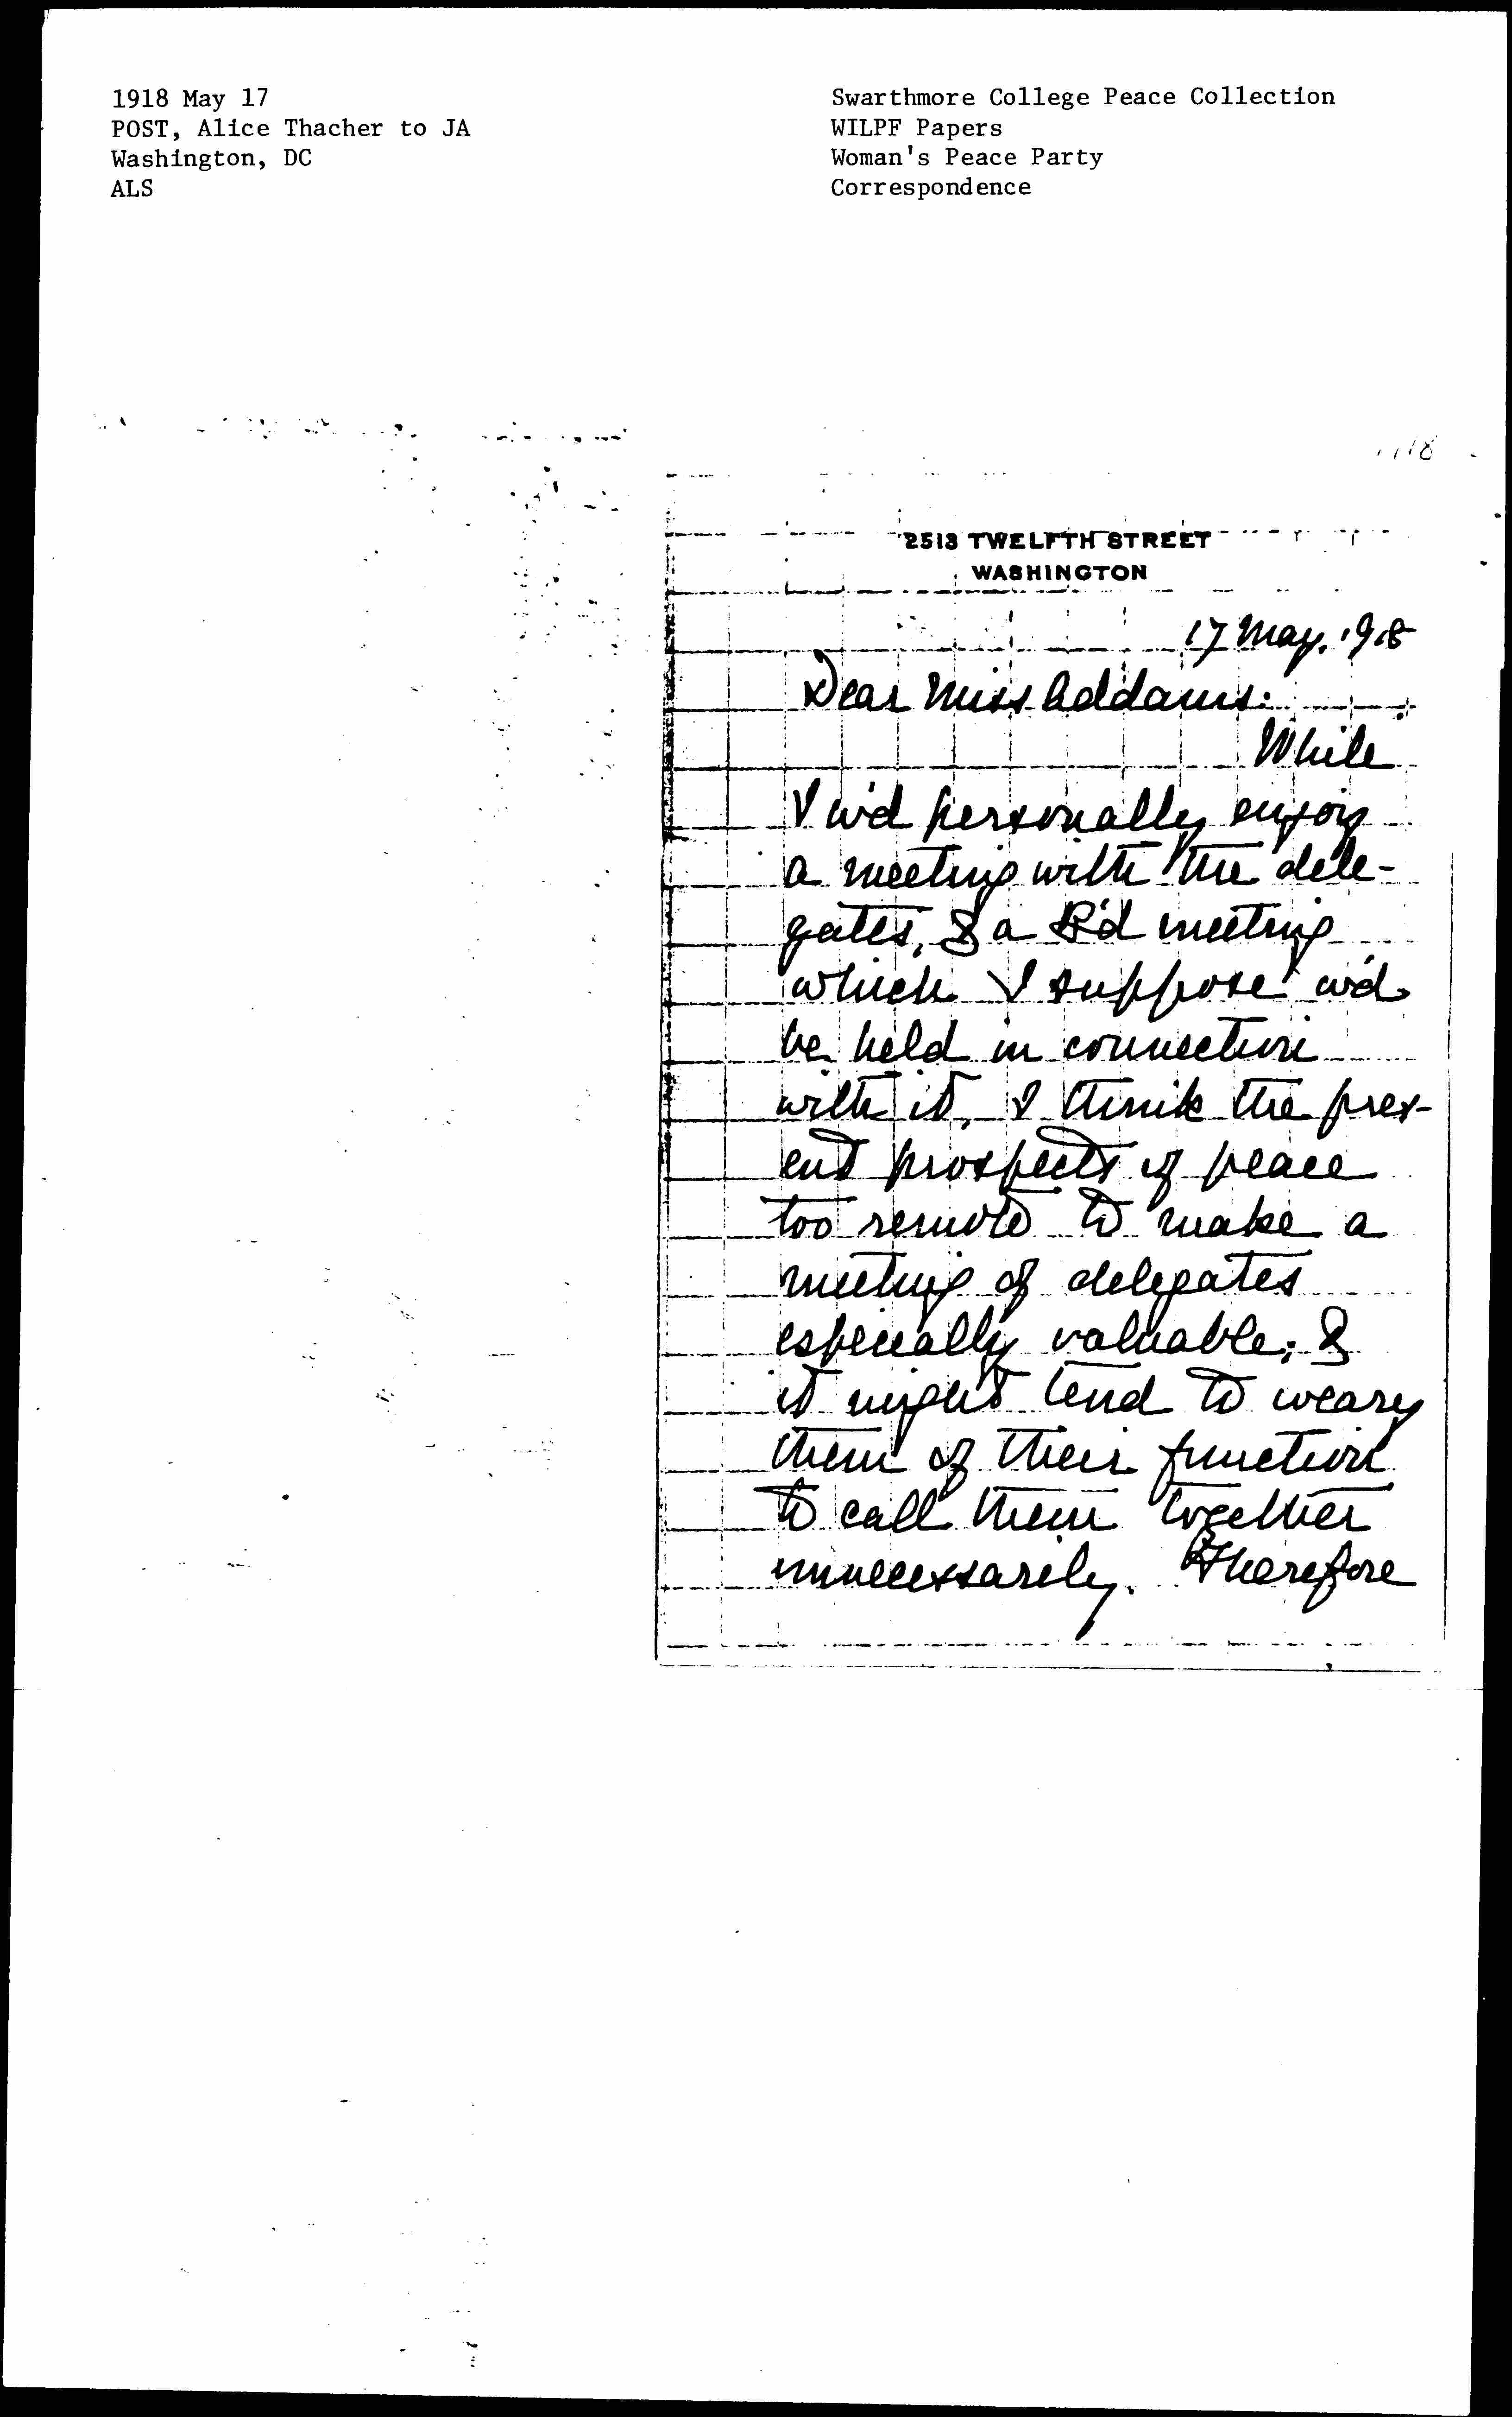 1918 May 17
POST, Alice Thacher to JA
Washington, DC
ALS
Swarthmore College Peace Collection
WILPF Papers
Woman's Peace Party
Correspondence
2513 TWELFTH STREET
WASHINGTON
17 May. 1918
Dear Miss Addams:
While
I w'd personally enjoy
a meeting with the dele-
gates, & a B'd meeting
which I suppose w'd
be held in connection
with it, I think the pres-
ent prospects of peace
too remote to make a
meeting of delegates
especially valuable; &
it might tend to weary
them of their function
to call them together
unnecessarily. Therefore